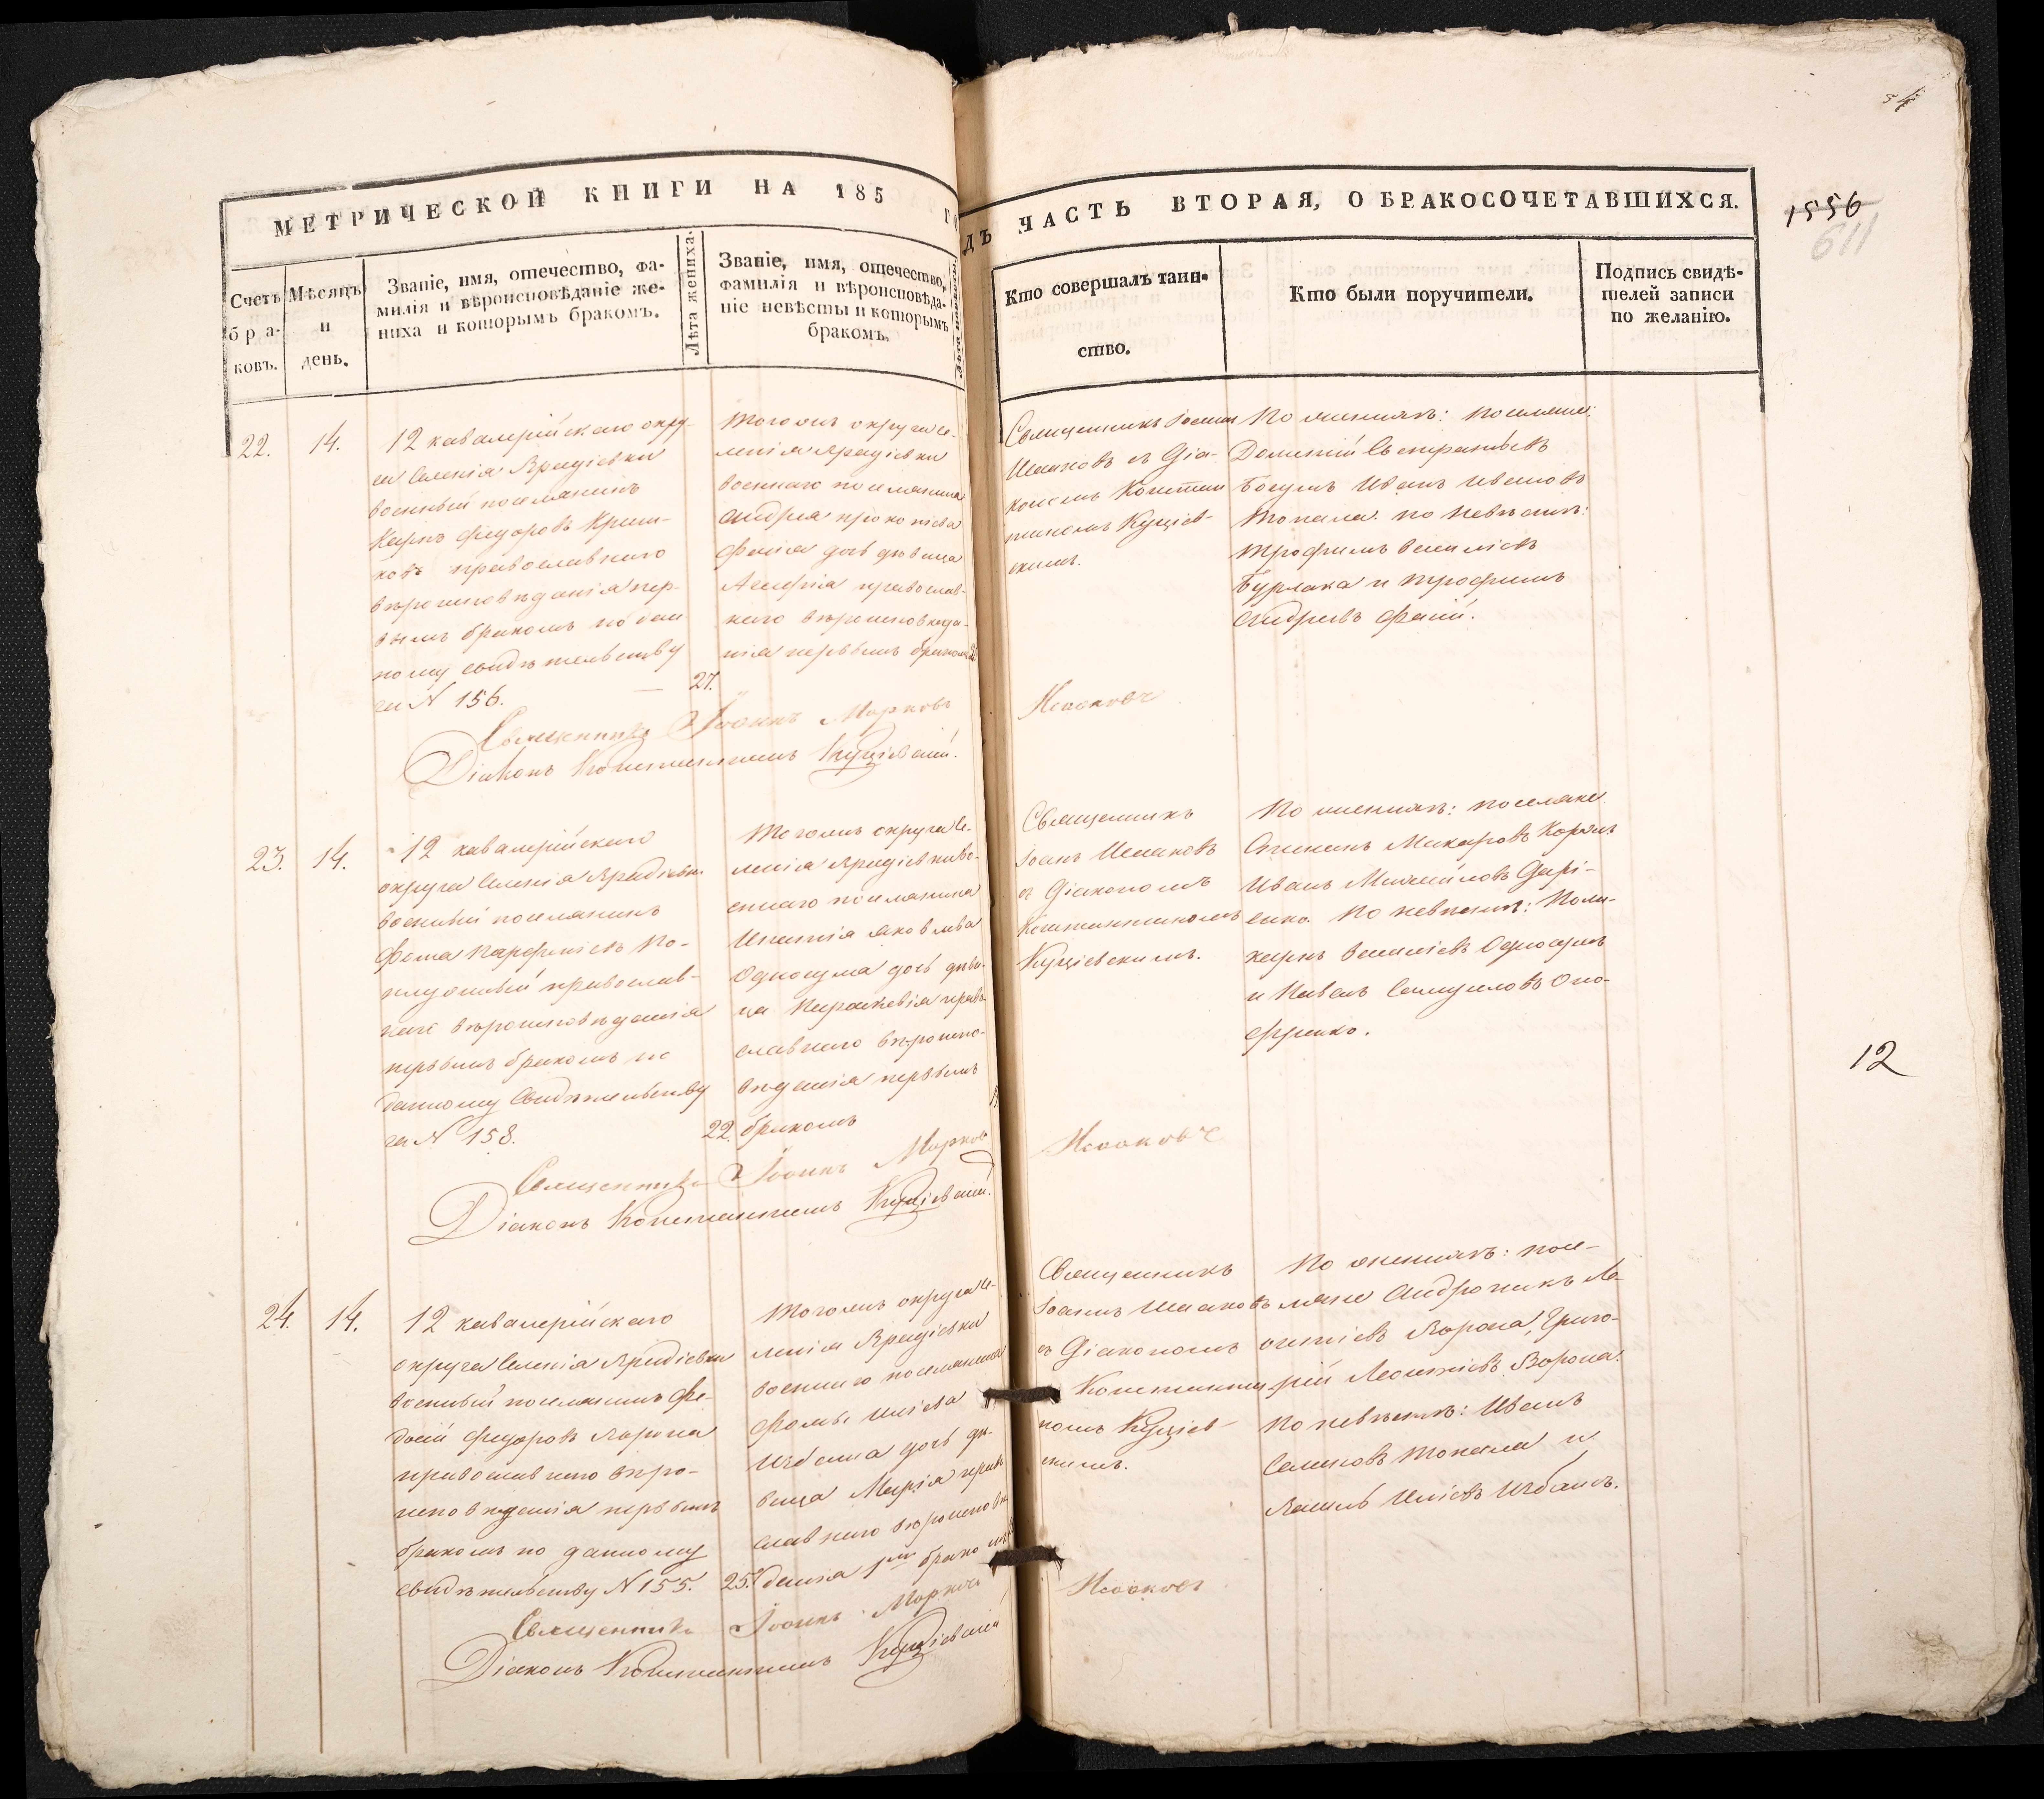 МЕТРИЧЕСКОЙ КНИГИ НА 185 ГО
ДЪ ЧАСТЬ ВТОРАЯ, О БРАКОСОЧЕТАВШИХСЯ.
54
1556
611
Счетъ бра-ковъ.
Мѣсяцъ и день.
Званіе, имя, отечество, фа-
милія и вѣроисповѣданіе же-
ниха и которымъ бракомъ.
Лѣта жениха.
Званіе, имя, отечество,
фамилія и вѣроисповѣда-
ніе невѣсты и которымъ
бракомъ.
Лѣта невѣсты
Кто совершалъ таин-
ство.
Кто были поручители.
Подпись свидѣ-
телей записи
по желанію.
22.
14.
12 кавалерійскаго окру-
га Селенія Врадіевки
военный поселянинъ
Карпъ Федоровъ
православнаго
вѣроисповѣданія пер-
вымъ бракомъ по дан
ному свидѣтельству
за N 156.
27.
Тогожъ округа се-
ленія Врадіевки
военнаго поселянина
Андрея Прокопіева
Фанія дочь дѣвица
Агафія православ-
наго вѣроисповѣда-
нія первымъ бракомъ
Священникъ Іоаннъ
Исааковъ съ Діа-
кономъ Констан
тиномъ Куціев-
скимъ.
По женихѣ: поселяне:
Дометій Евстратіевъ
Богумъ Иванъ Ивановъ
Топала. по невѣстѣ:
Трофимъ Василіевъ
Бурлака и Трофимъ
Андреевъ Фаній.
Священникъ Іоаннъ Марковъ
Исааковъ
Діаконъ Константинъ Куціевскій.
23.
14.
12 кавалерійскаго
округа Селенія Врадіевки
военный поселянинъ
Фома Парфеніевъ По-
православ-
наго вѣроисповѣданія
первымъ бракомъ по
данному Свидѣтельству
за N 158.
22.
Тогожъ округа Се-
леніа Врадіевки во-
еннаго поселянина
Игнатія Яковлева
Односума дочь дѣви-
ца Параскевія право-
славнаго вѣроиспо-
вѣданія первымъ
бракомъ
Священникъ
Іоанъ Исааковъ
съ Діакономъ
Константиномъ
Куціевскимъ.
По женихѣ: поселяне
Степанъ Макаровъ
Иванъ Михайловъ Дарі-
енко. По невѣстѣ: Поли-
карпъ Василіевъ Односумъ
и Павелъ Самуиловъ Оно-
фріенко.
12
Священникъ Іоаннъ Марковъ
Исааковъ
Діаконъ Константинъ Куціевскій.
24.
14.
12 кавалерійскаго
округа Селенія Врадіевки
военный поселянинъ Фе-
досій Федоровъ Ворона
православнаго вѣро-
исповѣданія первымъ
бракомъ по данному
свидѣтельству N 155.
25.
Тогожъ округа се-
ленія Врадіевки
военнаго поселянина
Фомы Иліева
Ичбаша дочь дѣ-
вица Марія право
славнаго вѣроисповѣ
данія 1мъ бракомъ
Священникъ
Іоаннъ Исааковъ
съ Діакономъ
Константи
номъ Куціев-
скимъ.
По женихѣ: посе-
ляне Андроникъ Ле-
онтіевъ Ворона, Григо-
рій Леонтіевъ Ворона.
По невѣстѣ: Иванъ
Семеновъ Топала и
Василь Иліевъ Ичбашъ.
Священникъ Іоаннъ Марковъ
Исааковъ
Діаконъ Константинъ Куціевскій